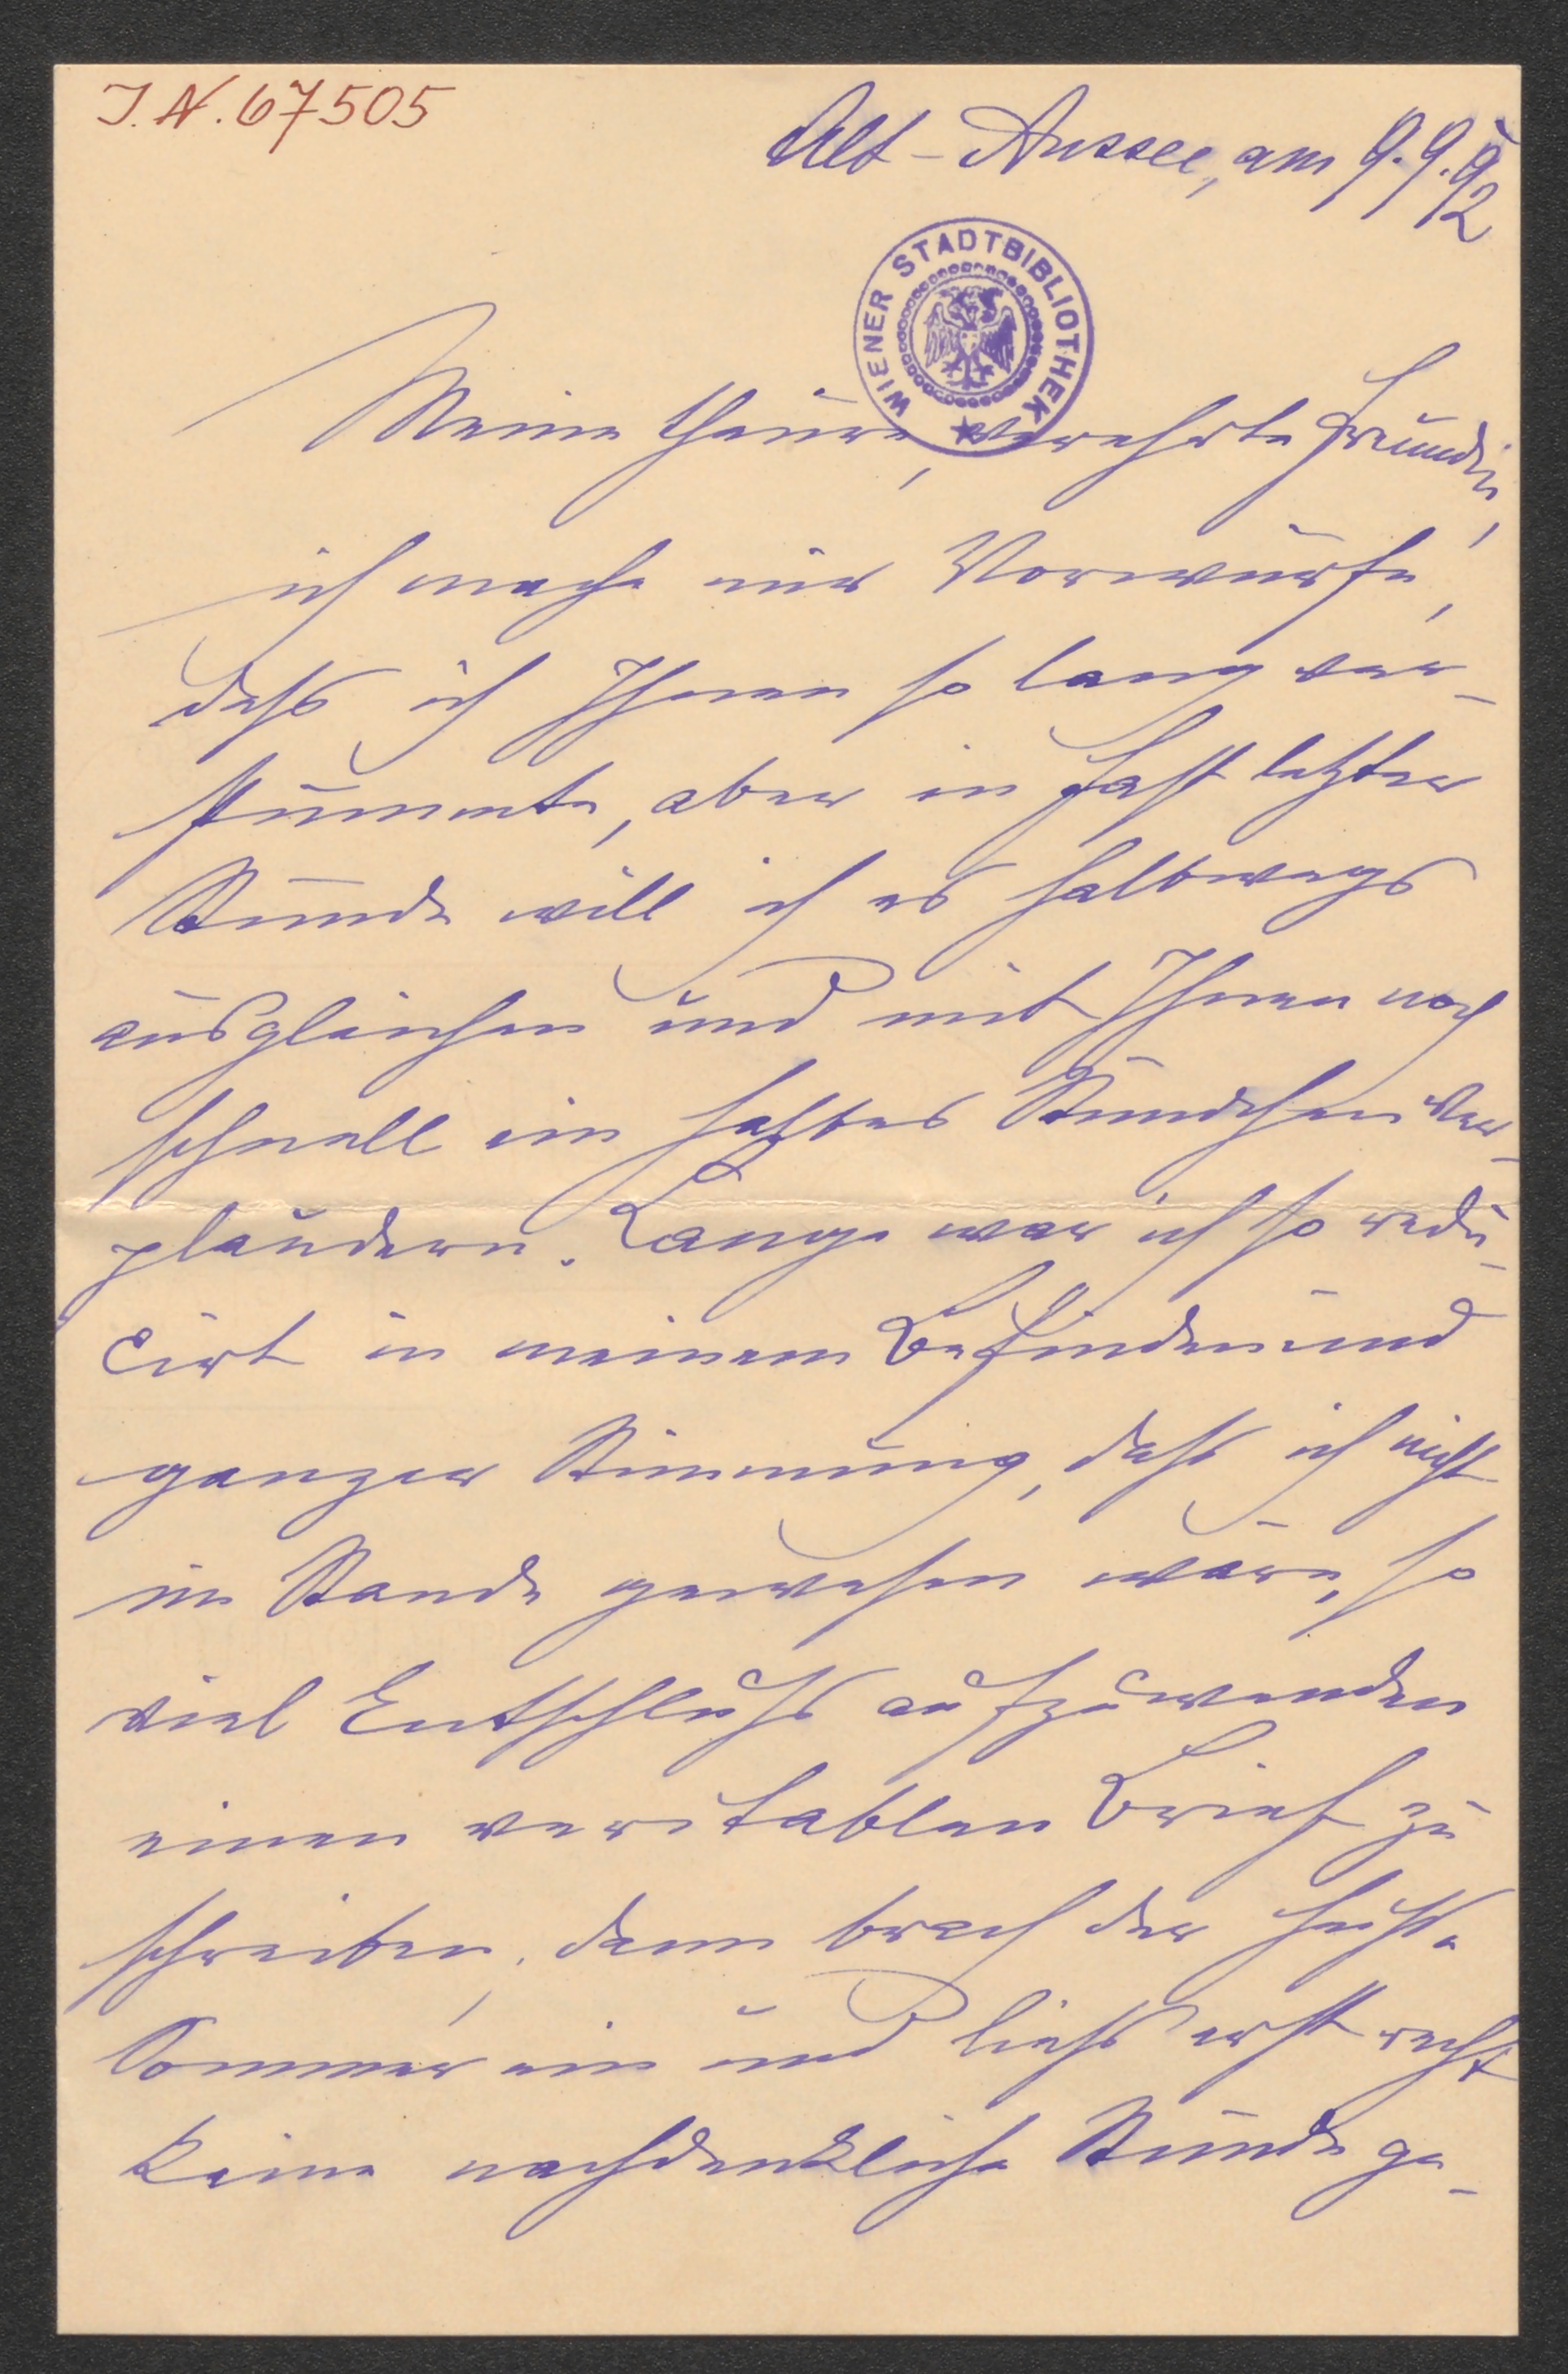 J. N. 67505
Alt-Aussee, am 9.9.92
WIENER STADTBIBLIOTHEK
Meine theure, verehrte Freundin,
ich mache mir Vorwürfe,
dass ich Ihnen so lang ver-
stummte, aber in fast letzter
Stunde will ich es halbwegs
ausgleichen und mit Ihnen noch
schnell ein halbes Stündchen ver-
plaudern. Lange war ich so redu-
cirt in meinem Befinden und
ganzer Stimmung, dass ich nicht
im Stande gewesen wäre, so
viel Entschluss aufzuwenden
einen veritablen Brief zu
schreiben, dann brach der heiße
Sommer ein und liess erst recht
keine nachdenkliche Stunde ge-